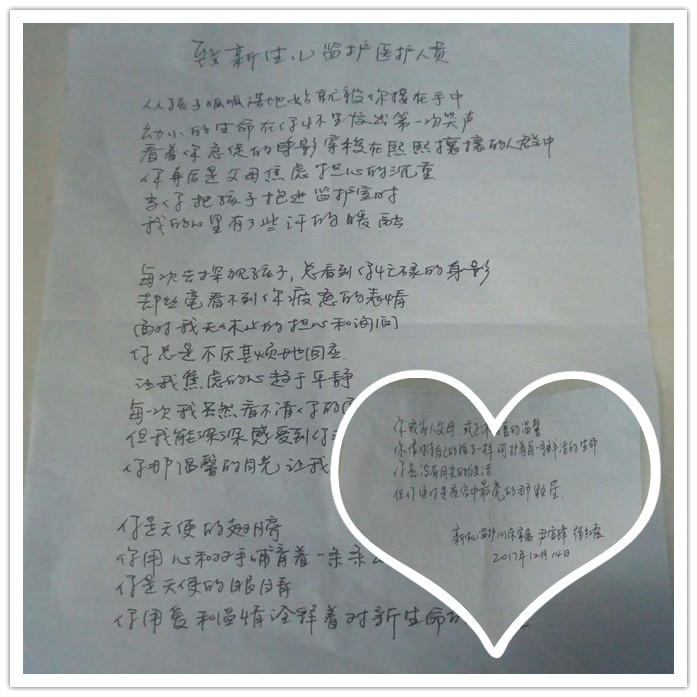 致新生儿监护医护人员
从孩子呱呱落地始就被你接在手中
幼小的生命在你怀里发出第一次哭声
看着你急促的身影穿梭在熙熙攘攘的人群中
你身后是父母焦虑担心的沉重
当你把孩子抱进监护室时
我的心里有了些许的暖融
每次去探视孩子,总看到你忙碌的身影
却丝毫看不到你疲惫的表情
面对我无休止的担心和询问
你总是不厌其烦地回应
让我焦虑的心趋于平静
每次我虽然看不清你的
但我能深深感受到你
你那温馨的目光让我
你是天使的翅膀
你用心和双手哺育着一条条
你是天使的眼睛
你用爱和温情诠释着对新生命
你我为人父母,
你像对待自己的孩子一样呵护着每一条鲜活的生命
你是没有月光的夜
但你这时是夜空中最亮的那粒星
2017年12月14日